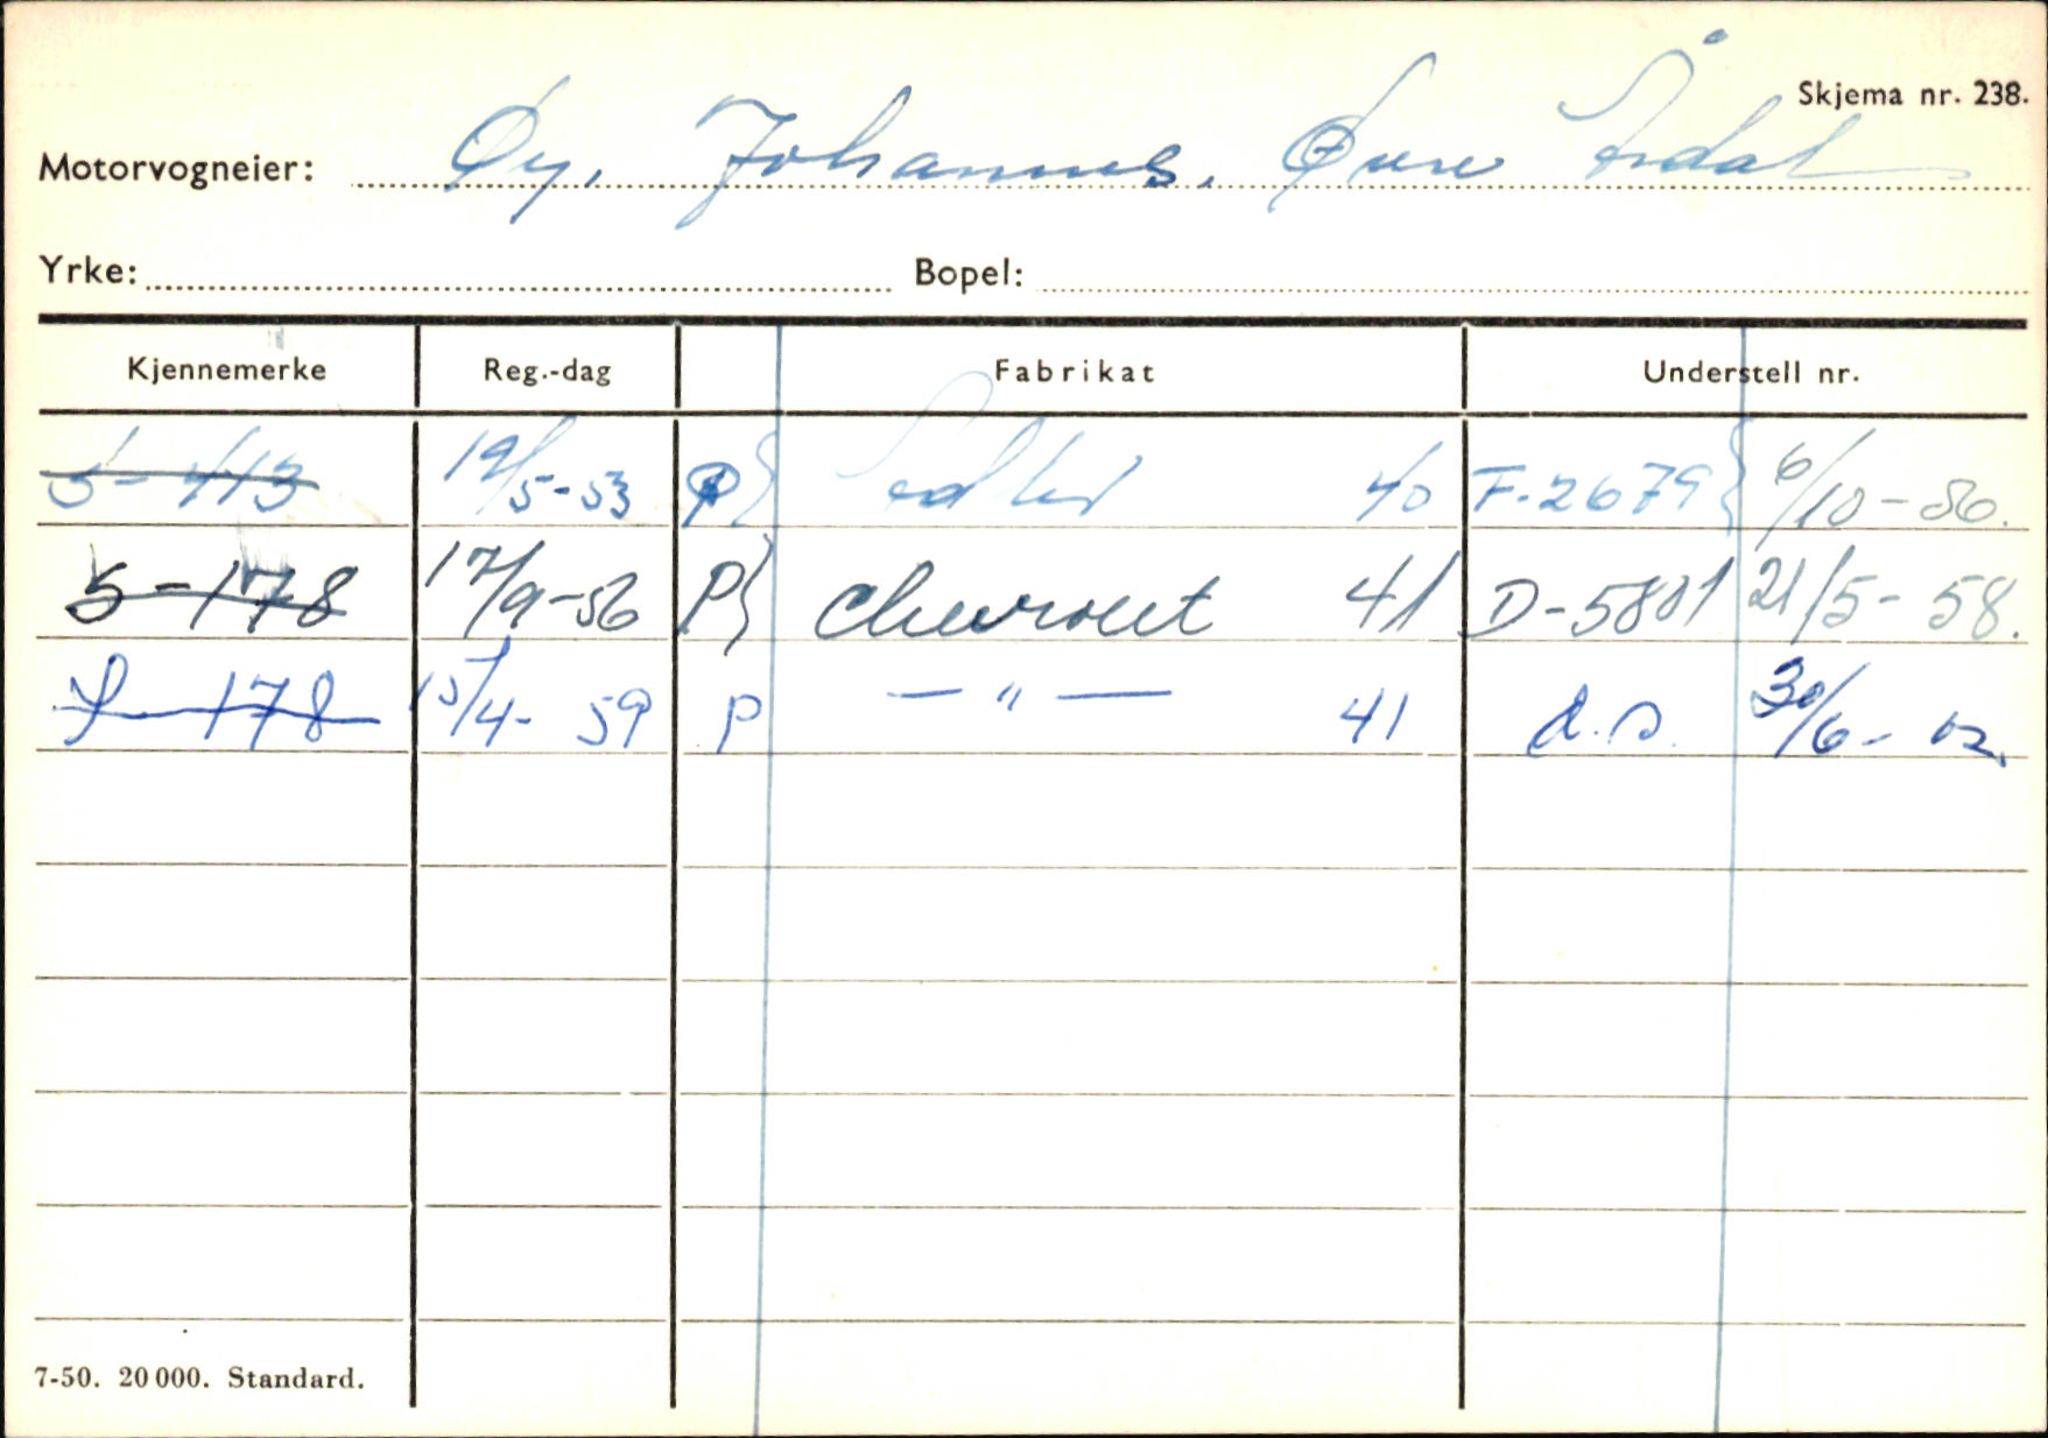 Skjema nr. 238.
Motorvogneier: Øy, Johannes. Øvre Årdal
Yrke: Bopel:
Kjennemerke Reg.-dag Fabrikat Understell nr.
S-413 19/5-53 P Adler 40 F-2679 6/10-56.
S-178 17/9-56 P Chevrolet 41 D-5801 21/5-58.
S-178 15/4-59 P —"— 41 d.s. 30/6-62.
7-50. 20 000. Standard.